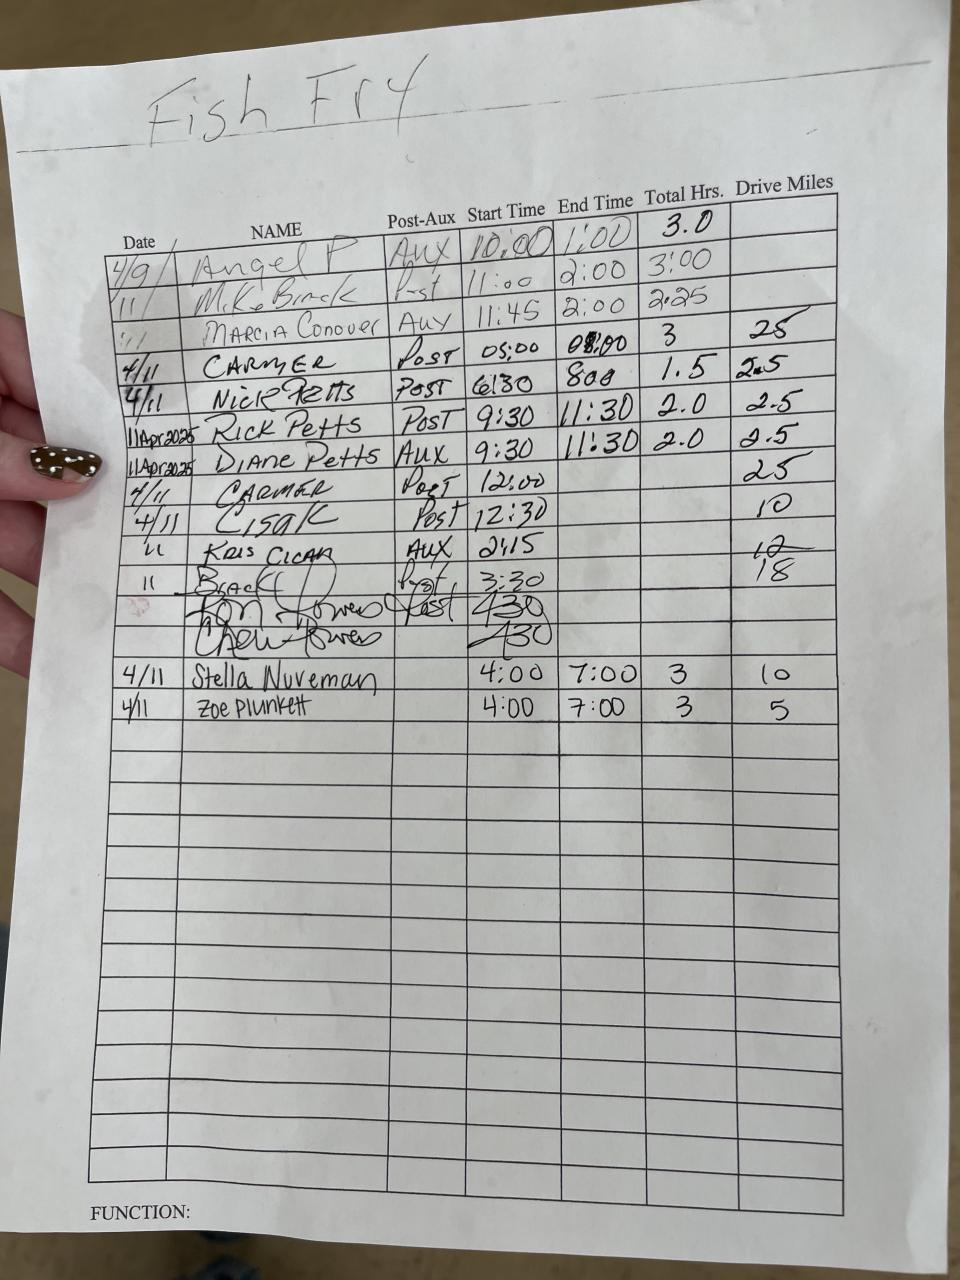 Fish Fry
Date NAME Post-Aux Start Time End Time Total Hrs. Drive Miles
4/9 Angel P Aux 10:00 1:00 3.0
11 Mike Post 11:00 2:00 3:00
11 MARCIA Conover Aux 11:45 2:00 2.25
4/11 CARMER POST 05:00 08:00 3 25
4/11 Nick Petts POST 6:30 800 1.5 2.5
11Apr2025 Rick Petts POST 9:30 11:30 2.0 2.5
11Apr2025 Diane Petts AUX 9:30 11:30 2.0 2.5
4/11 CARMER POST 12:00 25
4/11 Cisak Post 12:30 10
11 KRIS AUX 2:15 12
11 Post 3:30 18
Post 430
430
4/11 Stella Nuveman 4:00 7:00 3 10
4/11 Zoe Plunkett 4:00 7:00 3 5
FUNCTION: